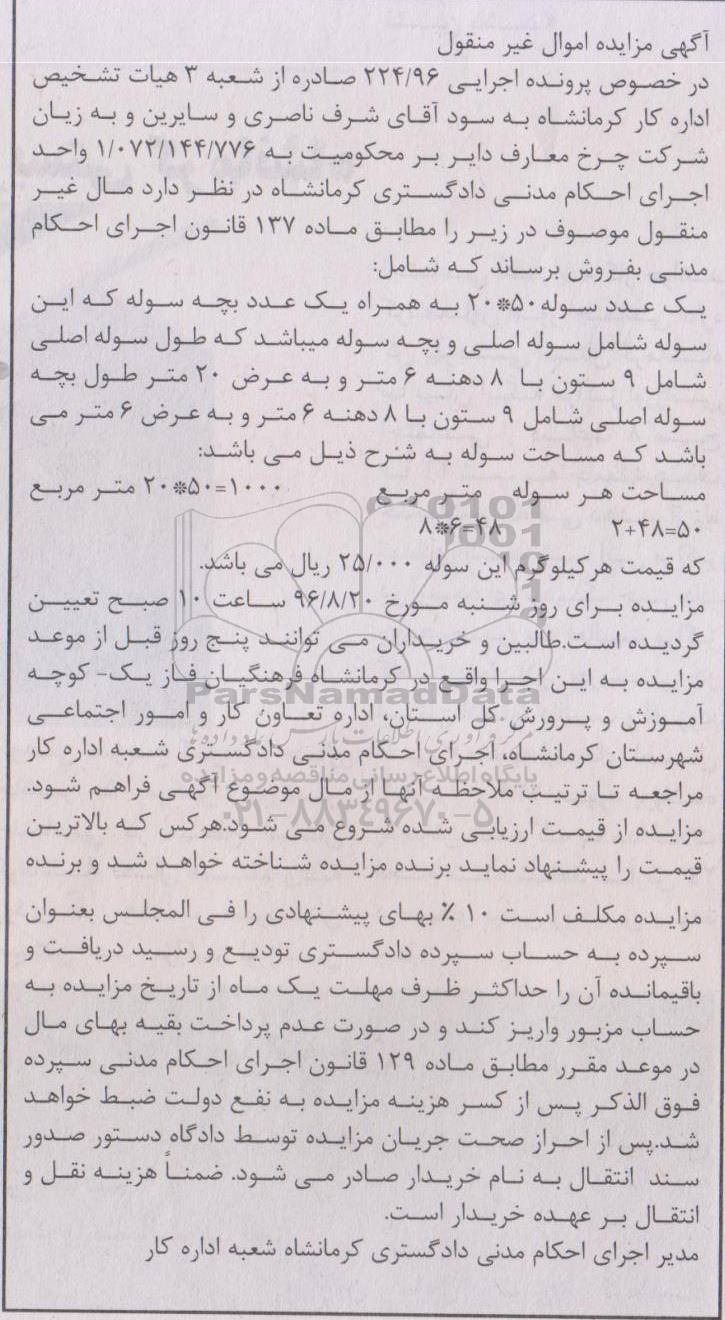 آگهی مزایده اموال غیر منقول
در خصوص پرونده اجرایی ۲۲۴/۹۶ صادره از شعبه ۳ هیات تشخیص
اداره کار کرمانشاه به سود آقای شرف ناصری و سایرین و به زیان
شرکت چرخ معارف دایر بر محکومیت به ۱/۰۷۲/۱۴۴/۷۷۶ واحد
اجرای احکام مدنی دادگستری کرمانشاه در نظر دارد مال غیر
منقول موصوف در زیر را مطابق ماده ۱۳۷ قانون اجرای احکام
مدنی بفروش برساند که شامل:
یک عدد سوله ۵۰*۲۰ به همراه یک عدد بچه سوله که این
سوله شامل سوله اصلی و بچه سوله میباشد که طول سوله اصلی
شامل ۹ ستون با ۸ دهنه ۶ متر و به عرض ۲۰ متر طول بچه
سوله اصلی شامل ۹ ستون با ۸ دهنه ۶ متر و به عرض ۶ متر می
باشد که مساحت سوله به شرح ذیل می باشد:
مساحت هر سوله متر مربع ۱۰۰۰=۵۰*۲۰ متر مربع
۵۰=۴۸+۲ ۴۸=۶*۸
که قیمت هرکیلوگرم این سوله ۲۵/۰۰۰ ریال می باشد.
مزایده برای روز شنبه مورخ ۹۶/۸/۲۰ ساعت ۱۰ صبح تعیین
گردیده است.طالبین و خریداران می توانند پنج روز قبل از موعد
مزایده به این اجرا واقع در کرمانشاه فرهنگیان فاز یک- کوچه
آموزش و پرورش کل استان، اداره تعاون کار و امور اجتماعی
شهرستان کرمانشاه، اجرای احکام مدنی دادگستری شعبه اداره کار
مراجعه تا ترتیب ملاحظه آنها از مال موضوع آگهی فراهم شود.
مزایده از قیمت ارزیابی شده شروع می شود.هرکس که بالاترین
قیمت را پیشنهاد نماید برنده مزایده شناخته خواهد شد و برنده
مزایده مکلف است ۱۰ ٪ بهای پیشنهادی را فی المجلس بعنوان
سپرده به حساب سپرده دادگستری تودیع و رسید دریافت و
باقیمانده آن را حداکثر ظرف مهلت یک ماه از تاریخ مزایده به
حساب مزبور واریز کند و در صورت عدم پرداخت بقیه بهای مال
در موعد مقرر مطابق ماده ۱۲۹ قانون اجرای احکام مدنی سپرده
فوق الذکر پس از کسر هزینه مزایده به نفع دولت ضبط خواهد
شد.پس از احراز صحت جریان مزایده توسط دادگاه دستور صدور
سند انتقال به نام خریدار صادر می شود. ضمناً هزینه نقل و
انتقال بر عهده خریدار است.
مدیر اجرای احکام مدنی دادگستری کرمانشاه شعبه اداره کار
ParsNamadData
پایگاه اطلاع رسانی مناقصه و مزایده
۰۲۱-۸۸۳۴۹۶۷۰-۵